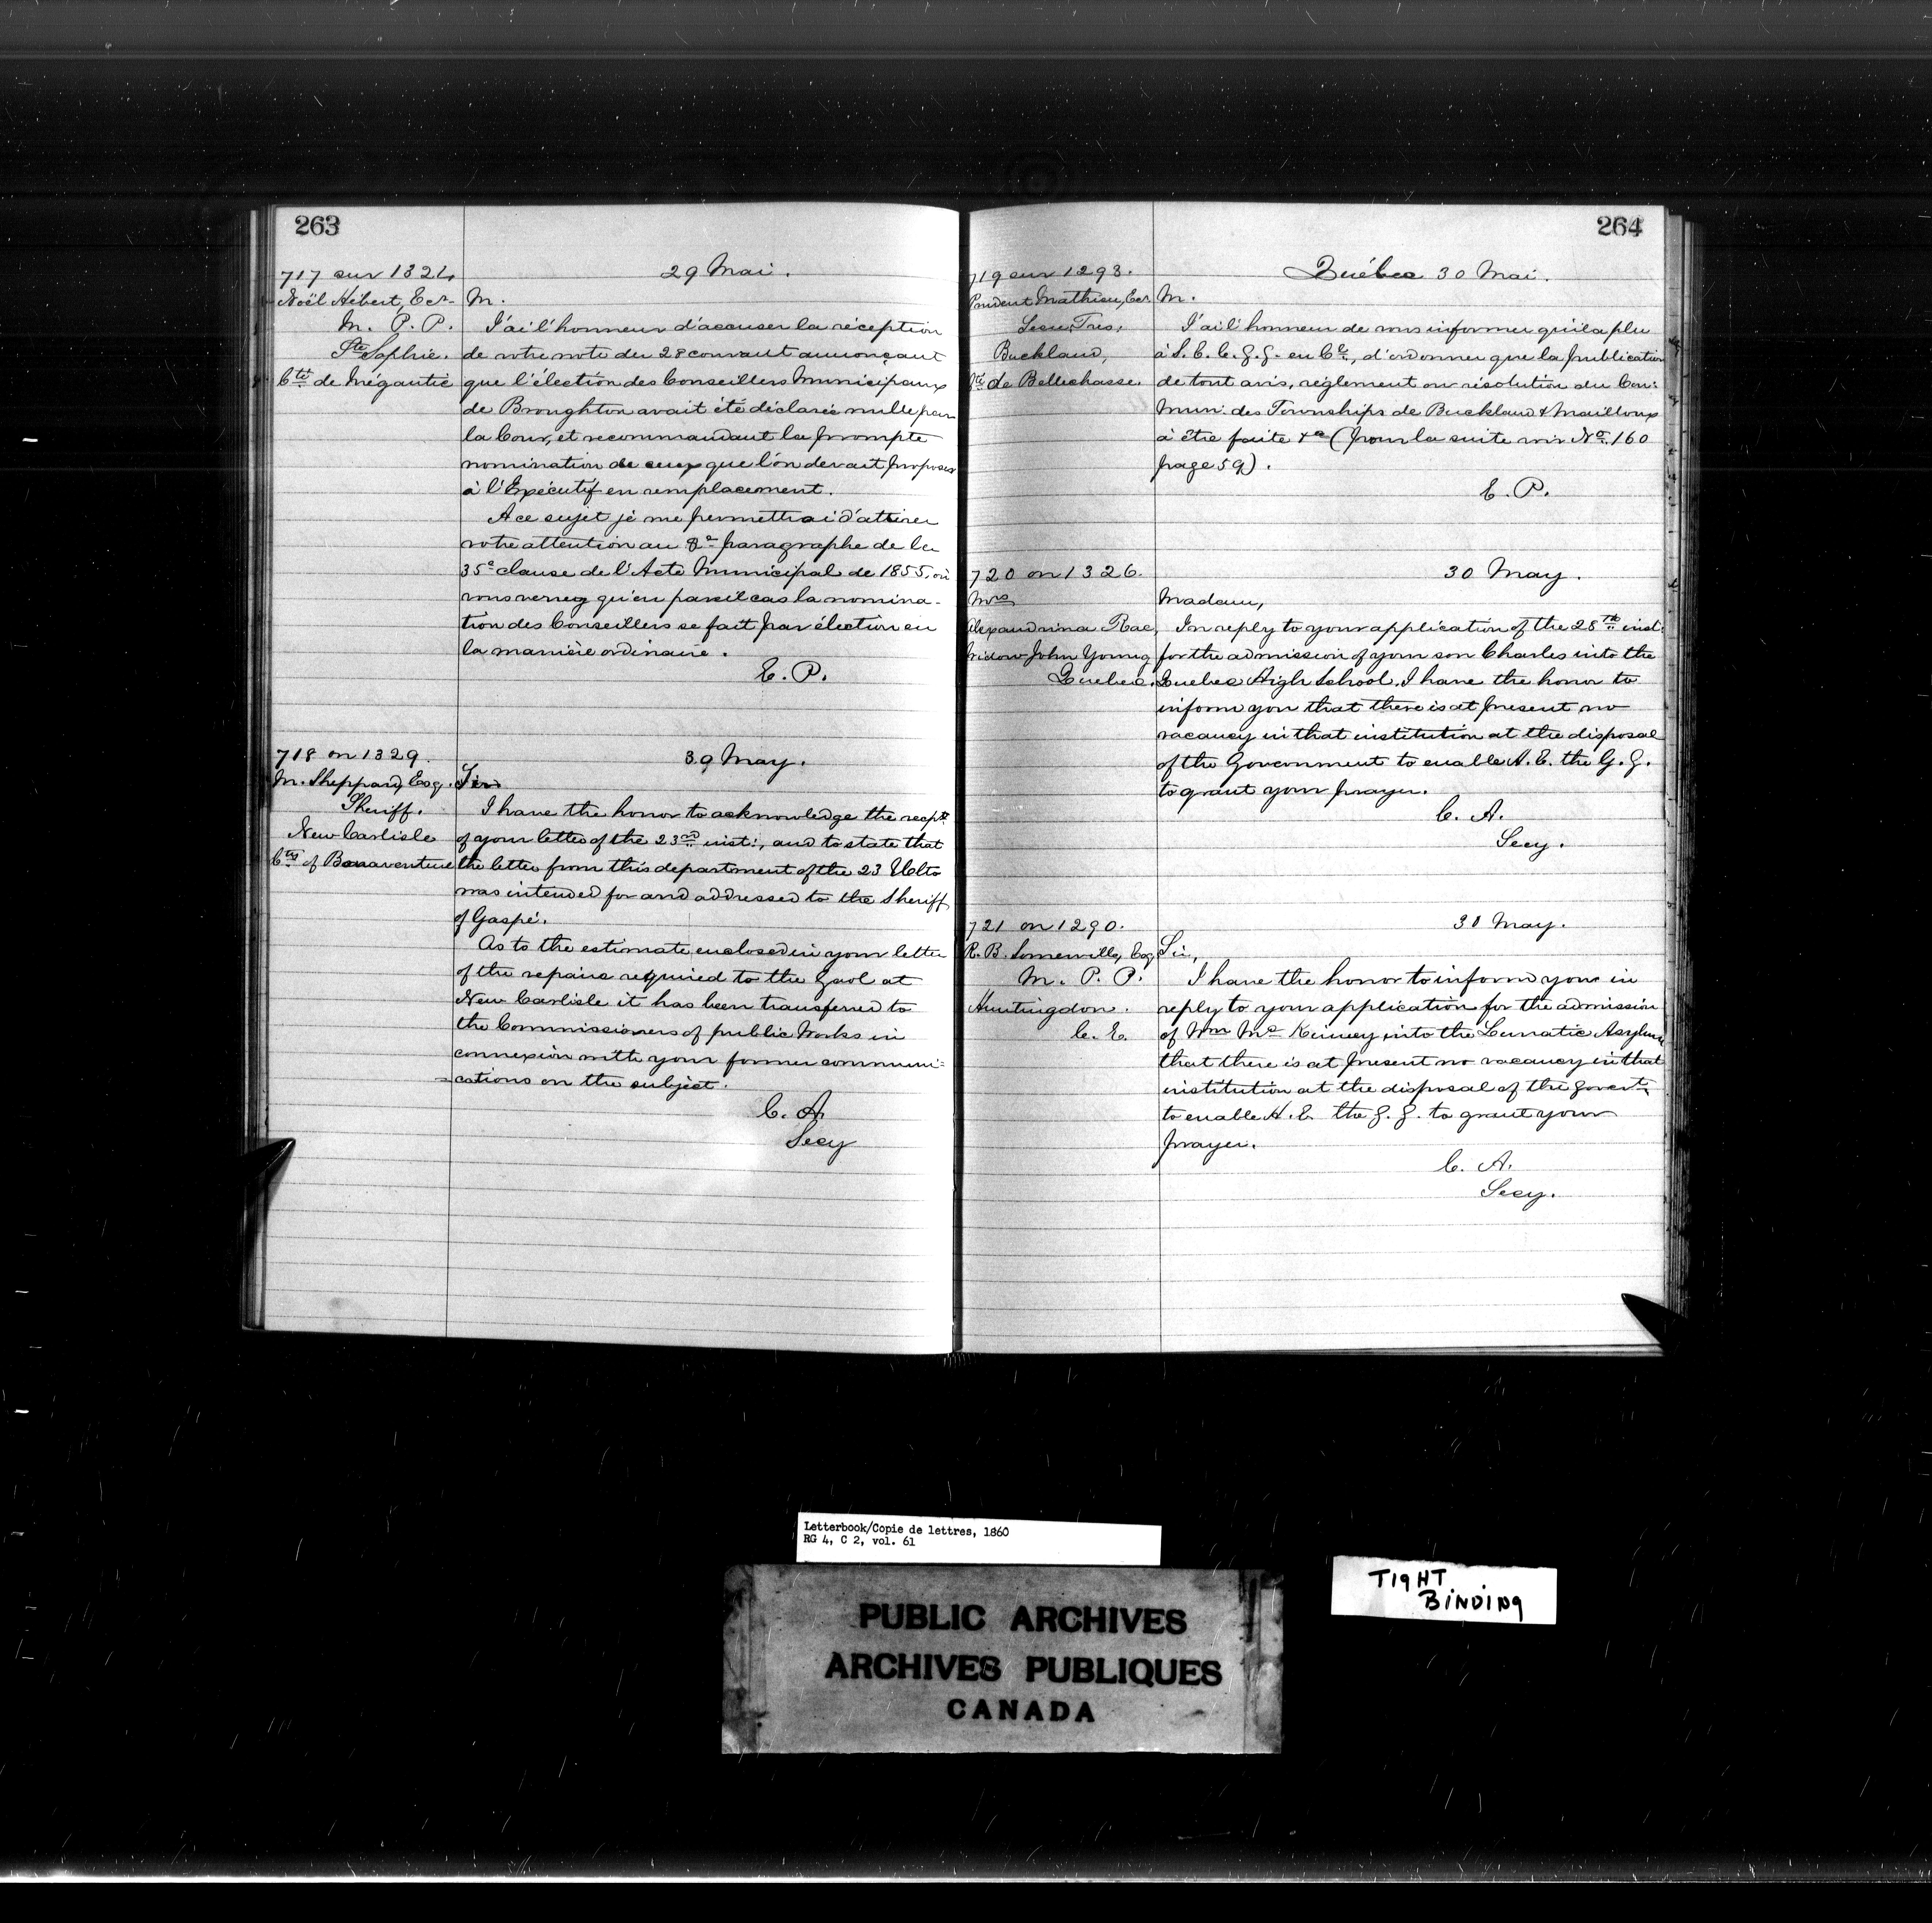 263
717 sur 1324
29 Mai.
Noël Hébert, Ecr
M. P. P.
Ste Sophie.
Cté de Mégantic
M.
J'ai l'honneur d'accuser la réception
de votre note du 28 courant annonçant
que l'élection des Conseillers Municipaux
de Broughton avait été déclarée nulle par
la Cour, et recommandant la prompte
nomination de ceux que l'on devait proposer
à l'Exécutif en remplacement.
A ce sujet je me permettrai d'attirer
votre attention au 8e paragraphe de la
35e clause de l'Acte Municipal de 1855, où
vous verrez qu'en pareil cas la nomina-
tion des Conseillers se fait par élection en
la manière ordinaire.
E. P.
718 on 1329.
30 May.
M. Sheppard, Esq.
Sheriff.
New Carlisle
Cty of Bonaventure
Sir
I have the honor to acknowledge the recpt
of your letter of the 23rd inst:, and to state that
the letter from this department of the 23 Ulto
was intended for and addressed to the Sheriff
of Gaspé.
As to the estimate enclosed in your letter
of the repairs required to the Gaol at
New Carlisle it has been transferred to
the Commissioners of public Works in
connexion with your former communi=
=cations on the subject.
C. A.
Secy
264
719 sur 1293.
Québec 30 Mai.
Prudent Mathieu, Ecr.
Secre. Tres.
Buckland,
Cté de Bellechasse.
M.
J'ai l'honneur de vous informer qu'il a plu
à S. E. le G. G. en Cl, d'ordonner que la publication
de tout avis, règlement ou résolution du Con:
Mun: des Townships de Buckland & Mailloux
à être faite &a (pour la suite voir No. 160
page 59).
E. P.
720 on 1326.
30 May.
Mrs
Alexandrina Rae,
Widow John Young
Quebec.
Madam,
In reply to your application of the 28th inst:
for the admission of your son Charles into the
Quebec High School, I have the honor to
inform you that there is at present no
vacancy in that institution at the disposal
of the Government to enable H. E. the G. G.
to grant your prayer.
C. A.
Secy.
721 on 1290.
30 May.
R. B. Somerville, Esq
M. P. P.
Huntingdon.
C. E.
Sir,
I have the honor to inform you in
reply to your application for the admission
of Wm Mc Kinney into the Lunatic Asylum
that there is at present no vacancy in that
institution at the disposal of the Govert
to enable H. E. the G. G. to grant your
prayer.
C. A.
Secy.
Letterbook/Copie de lettres, 1860
RG 4, C 2, vol. 61
TIGHT
BINDING
PUBLIC ARCHIVES
ARCHIVES PUBLIQUES
CANADA